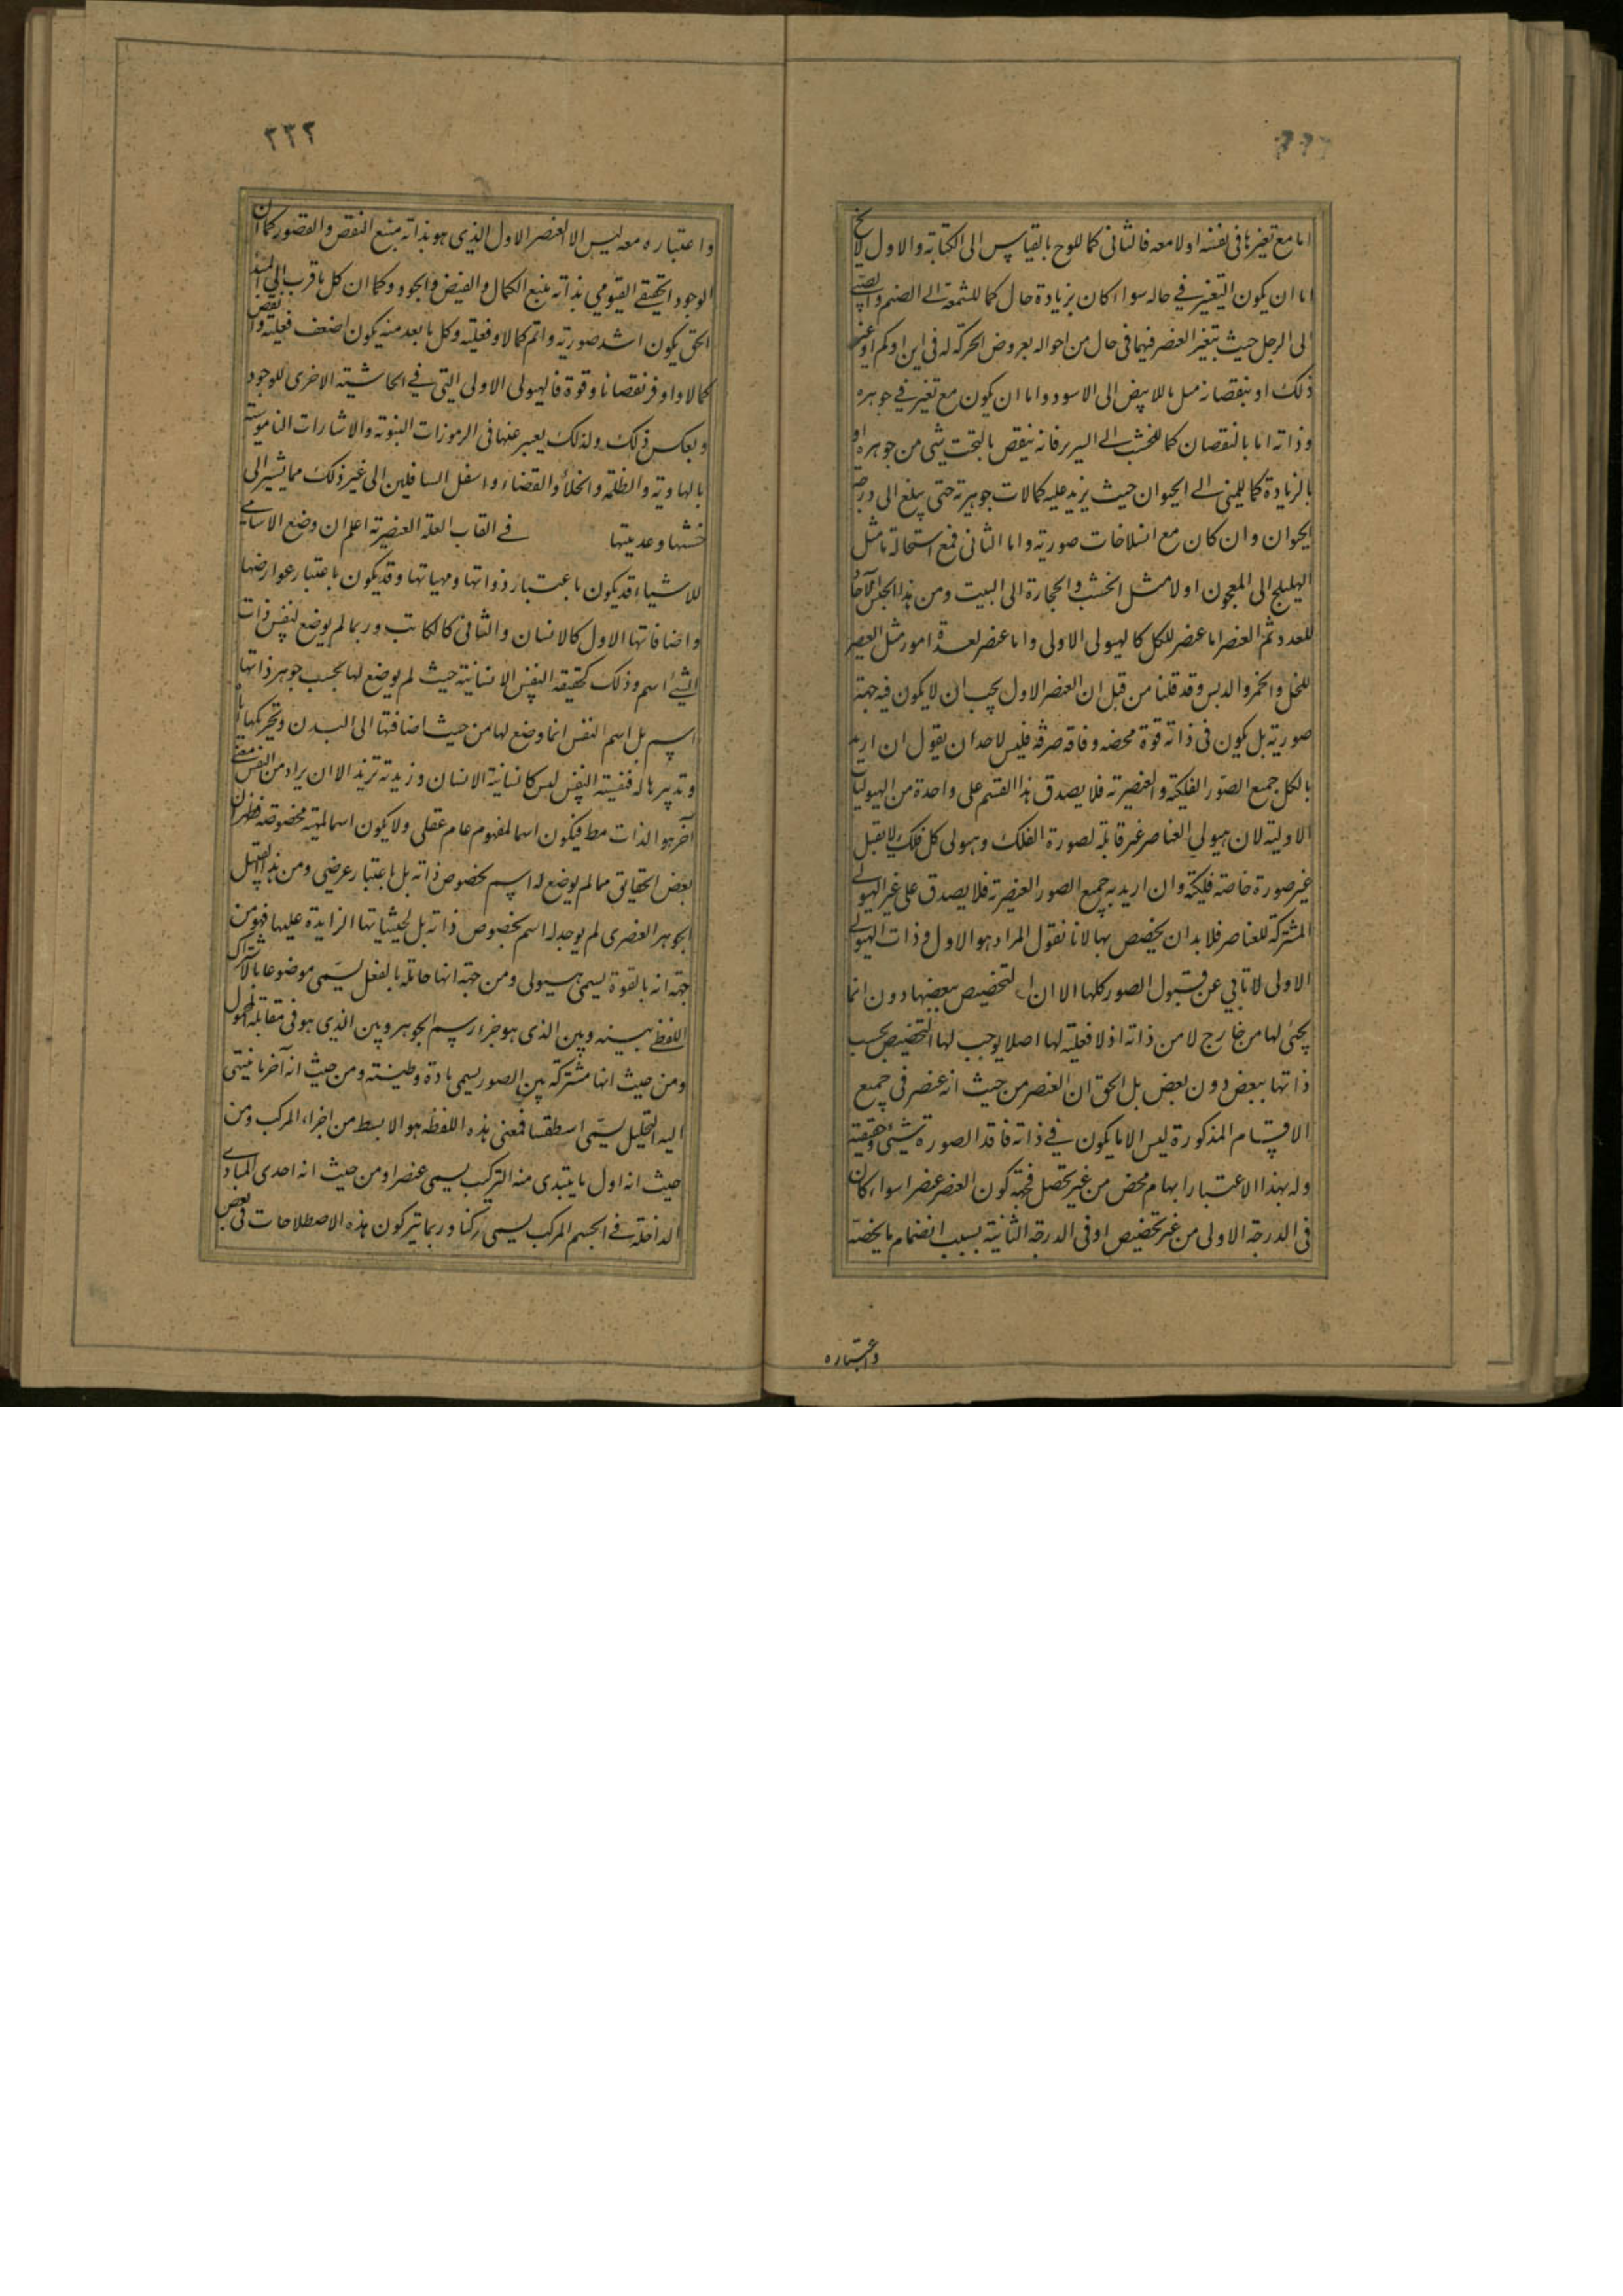 اما مع تغير ما فى نفسه او لا معه فالثانى كما للوح بالقياس الى الكتابة والاول لا يخ
اما ان يكون التغير فى حاله سواء كان بزيادة حال كما للشمعة الى الصنم والصبى
الى الرجل حيث يتغير العنصر فيهما فى حال من احواله بعروض الحركة له فى اين او كم او غير
ذلك او بنقصانه مثل ما للابيض الى الاسود واما ان يكون مع تغير فى جوهره
وذاته اما بالنقصان كما للخشب الى السرير فانه ينقص بالنحت شئ من جوهره او
بالزيادة كما للمنى الى الحيوان حيث يزيد عليه كمالات جوهرية حتى يبلغ الى درجة
الحيوان وان كان مع انسلاخات صورية واما الثانى فمع استحالة ما مثل
الهليلج الى المعجون او لا مثل الخشب والحجارة الى البيت ومن هذا الجنس الآحاد
للعدد ثم العنصر اما عنصر للكل كالهيولى الاولى واما عنصر لعدة امور مثل العصير
للخل والخمر والدبس وقد قلنا من قبل ان العنصر الاول يجب ان لا يكون فيه جهة
صورية بل يكون فى ذاته قوة محضه وفاقه صرفه فليس لاحد ان يقول ان اريد
بالكل جميع الصور الفلكية والعنصرية فلا يصدق هذا القسم على واحدة من الهيوليات
الاولية لان هيولى العناصر غير قابلة لصورة الفلك وهيولى كل فلك لا يقبل
غير صورة خاصة فلكية وان اريد به جميع الصور العنصرية فلا يصدق على غير الهيولى
المشتركة للعناصر فلا بد ان يخصص بها لانا نقول المراد هو الاول وذات الهيولى
الاولى لا تابى عن قبول الصور كلها الا ان التخصيص ببعضها دون انما
يجئ لها من خارج لا من ذاته اذ لا فعلية لها اصلا يوجب لها التخصيص بحسب
ذاتها ببعض دون بعض بل الحق ان العنصر من حيث انه عنصر فى جميع
الاقسام المذكورة ليس الا ما يكون فى ذاته فاقد الصورة شئ وحقيقة
وله بهذا الاعتبار ابهام محض من غير تحصل فجهة كون العنصر عنصرا سواء كان
فى الدرجة الاولى من غير تخصيص او فى الدرجة الثانية بسبب انضمام ما يخصه
واعتباره
٢٣٢
واعتباره معه ليس الا العنصر الاول الذى هو بذاته منبع النقص والقصور كما ان
الوجود الحقيقى القيومى بذاته منبع الكمال والفيض والجود وكما ان كل ما قرب الى المبدأ
الحق يكون اشد صورية واتم كمالا وفعلية وكل ما بعد منه يكون اضعف فعلية وانقص
كمالا واوفر نقصانا وقوة فالهيولى الاولى التى فى الحاشية الاخرى للوجود
وبعكس ذلك ولذلك يعبر عنها فى الرموزات النبوية والاشارات الناموسية
بالهاوية والظلمة والخلأ والفضاء واسفل السافلين الى غير ذلك مما يشير الى
خستها وعدميتها فى القاب العلة العنصرية اعلم ان وضع الاسامى
للاشياء قد يكون باعتبار ذواتها ومهياتها وقد يكون باعتبار عوارضها
واضافاتها الاول كالانسان والثانى كالكاتب وربما لم يوضع لنفس ذات
الشئ اسم وذلك كحقيقة النفس الانسانية حيث لم يوضع لها بحسب جوهر ذاتها
اسم بل اسم النفس انما وضع لها من حيث اضافتها الى البدن وتحريكها
وتدبيرها له فنفسية النفس ليس كانسانية الانسان وزيدية زيد الا ان يراد من النفس معنى
آخر هو الذات مط فيكون اسما لمفهوم عام عقلى ولا يكون اسما لمهية مخصوصة فظهر ان
بعض الحقائق مما لم يوضع له اسم بخصوص ذاته بل باعتبار عرضى ومن هذا القبيل
الجوهر العنصرى لم يوجد له اسم بخصوص ذاته بل لحيثياتها الزايدة عليها فهو من
جهة انه بالقوة يسمى هيولى ومن جهة انها حاملة بالفعل يسمى موضوعا بالاشتراك
اللفظى بينه وبين الذى هو جزء رسم الجوهر وبين الذى هو فى مقابلة المحمول
ومن حيث انها مشتركة بين الصور يسمى مادة وطينة ومن حيث انه آخر ما ينتهى
اليه التحليل يسمى اسطقسا فمعنى هذه اللفظة هو الابسط من اجزاء المركب ومن
حيث انه اول ما يبتدى منه التركيب يسمى عنصرا ومن حيث انه احدى المبادى
الداخلة فى الجسم المركب يسمى ركنا وربما يتركون هذه الاصطلاحات فى بعض